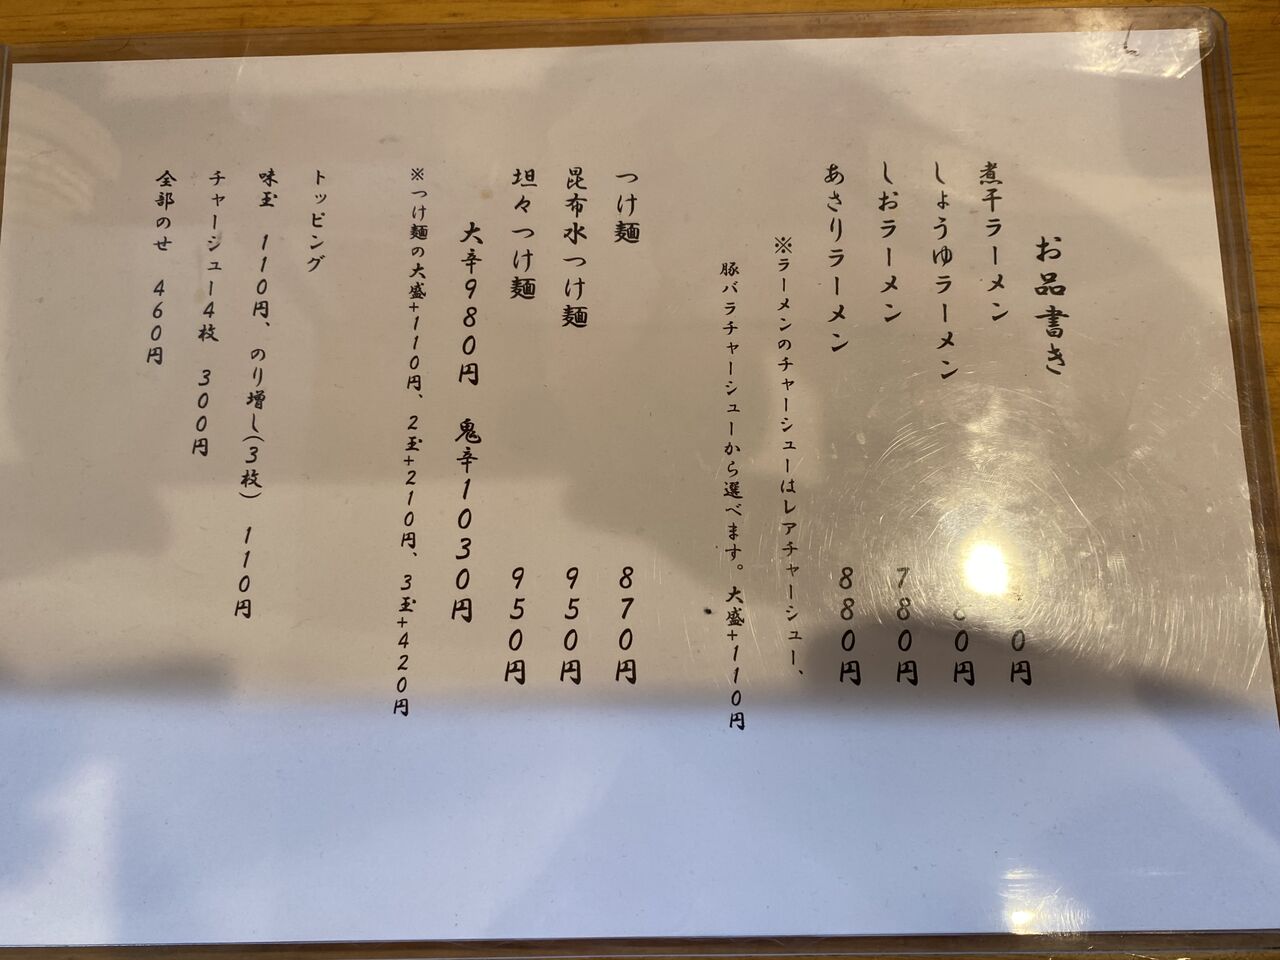 お品書き
煮干ラーメン 0円
しょうゆラーメン 80円
しおラーメン 780円
あさりラーメン 880円
※ラーメンのチャーシューはレアチャーシュー、
豚バラチャーシューから選べます。大盛+110円
つけ麺 870円
昆布水つけ麺 950円
坦々つけ麺 950円
大辛980円 鬼辛1030円
※つけ麺の大盛+110円、2玉+210円、3玉+420円
トッピング
味玉 110円、のり増し(3枚) 110円
チャーシュー4枚 300円
全部のせ 460円